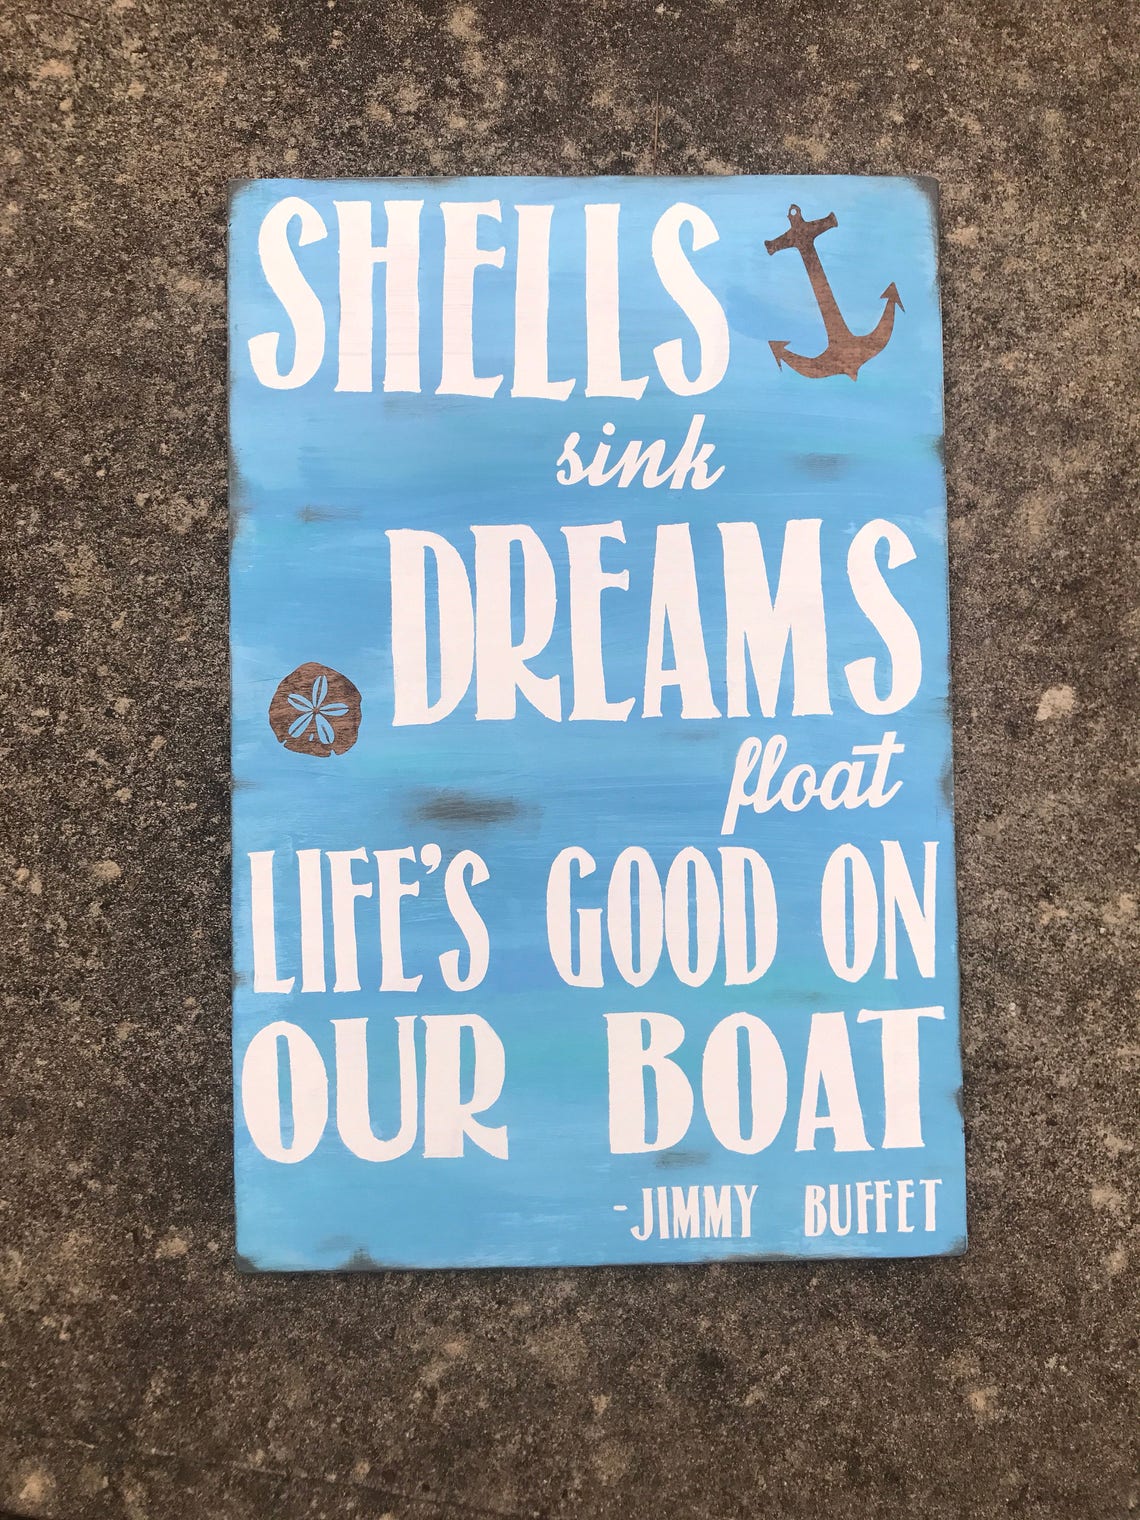 SHELLS
sink
DREAMS
float
LIFE'S GOOD ON
OUR BOAT
-JIMMY BUFFET